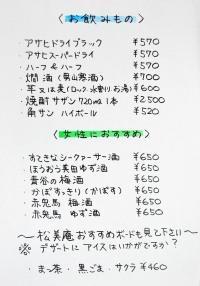 〈お飲みもの〉
・アサヒドライブラック ¥570
・アサヒスーパードライ ¥570
・ハーフ&ハーフ ¥570
・燗酒(男山寒酒) ¥700
・芋又は麦(ロック、水割りお湯) ¥600
・焼酎サザン720ml 1本 ¥2,500
・角サン ハイボール ¥520
〈女性におすすめ〉
・すてきなシークヮーサー酒 ¥650
・ほうおう美田ゆず酒 ¥650
・貴谷の梅酒 ¥650
・かぼすっきり(かぼす) ¥650
・赤兎馬 梅酒 ¥650
・赤兎馬 ゆず酒 ¥650
～松美庵おすすめボードも見て下さい～
※デザートにアイスはいかがですか?
まっ茶・黒ごま・サクラ ¥460